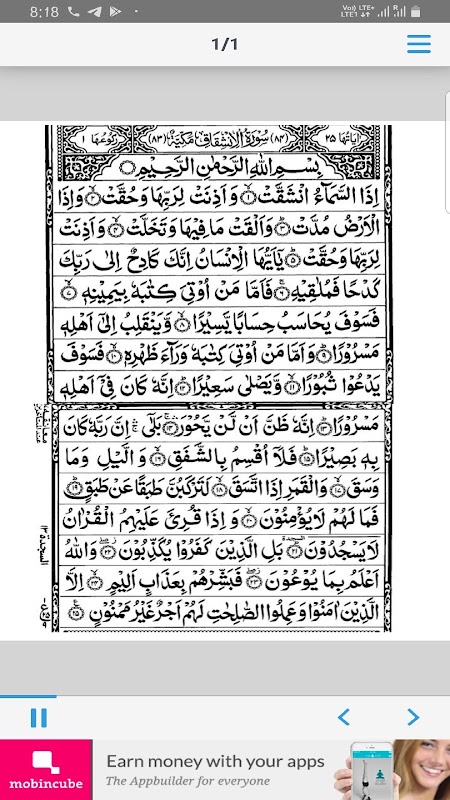 8:18
Vo)) LTE+
LTE1
R
1/1
اٰیَاتُهَا ۲۵ (۸۴) سُوْرَةُ الْاِنْشِقَاقِ مَكِّیَّةٌ (۸۳) رُكُوْعُهَا ۱
بِسْمِ اللّٰهِ الرَّحْمٰنِ الرَّحِیْمِ
اِذَا السَّمَآءُ انْشَقَّتْ ۝۱ وَ اَذِنَتْ لِرَبِّهَا وَ حُقَّتْ ۝۲ وَ اِذَا
الْاَرْضُ مُدَّتْ ۝۳ وَ اَلْقَتْ مَا فِیْهَا وَ تَخَلَّتْ ۝۴ وَ اَذِنَتْ
لِرَبِّهَا وَ حُقَّتْ ۝۵ یٰۤاَیُّهَا الْاِنْسَانُ اِنَّكَ كَادِحٌ اِلٰی رَبِّكَ
كَدْحًا فَمُلٰقِیْهِ ۝۶ فَاَمَّا مَنْ اُوْتِیَ كِتٰبَهٗ بِیَمِیْنِهٖ ۝۷
فَسَوْفَ یُحَاسَبُ حِسَابًا یَّسِیْرًا ۝۸ وَّ یَنْقَلِبُ اِلٰۤی اَهْلِهٖ
مَسْرُوْرًا ۝۹ وَ اَمَّا مَنْ اُوْتِیَ كِتٰبَهٗ وَرَآءَ ظَهْرِهٖ ۝۱۰ فَسَوْفَ
یَدْعُوْا ثُبُوْرًا ۝۱۱ وَّ یَصْلٰی سَعِیْرًا ۝۱۲ اِنَّهٗ كَانَ فِیْۤ اَهْلِهٖ
مَسْرُوْرًا ۝۱۳ اِنَّهٗ ظَنَّ اَنْ لَّنْ یَّحُوْرَ ۝۱۴ بَلٰۤی اِنَّ رَبَّهٗ كَانَ
بِهٖ بَصِیْرًا ۝۱۵ فَلَاۤ اُقْسِمُ بِالشَّفَقِ ۝۱۶ وَ الَّیْلِ وَ مَا
وَسَقَ ۝۱۷ وَ الْقَمَرِ اِذَا اتَّسَقَ ۝۱۸ لَتَرْكَبُنَّ طَبَقًا عَنْ طَبَقٍ ۝۱۹
فَمَا لَهُمْ لَا یُؤْمِنُوْنَ ۝۲۰ وَ اِذَا قُرِئَ عَلَیْهِمُ الْقُرْاٰنُ
لَا یَسْجُدُوْنَ ۝۲۱ بَلِ الَّذِیْنَ كَفَرُوْا یُكَذِّبُوْنَ ۝۲۲ وَ اللّٰهُ
اَعْلَمُ بِمَا یُوْعُوْنَ ۝۲۳ فَبَشِّرْهُمْ بِعَذَابٍ اَلِیْمٍ ۝۲۴ اِلَّا
الَّذِیْنَ اٰمَنُوْا وَ عَمِلُوا الصّٰلِحٰتِ لَهُمْ اَجْرٌ غَیْرُ مَمْنُوْنٍ ۝۲۵
السجدة ۱۳
Earn money with your apps
The Appbuilder for everyone
mobincube